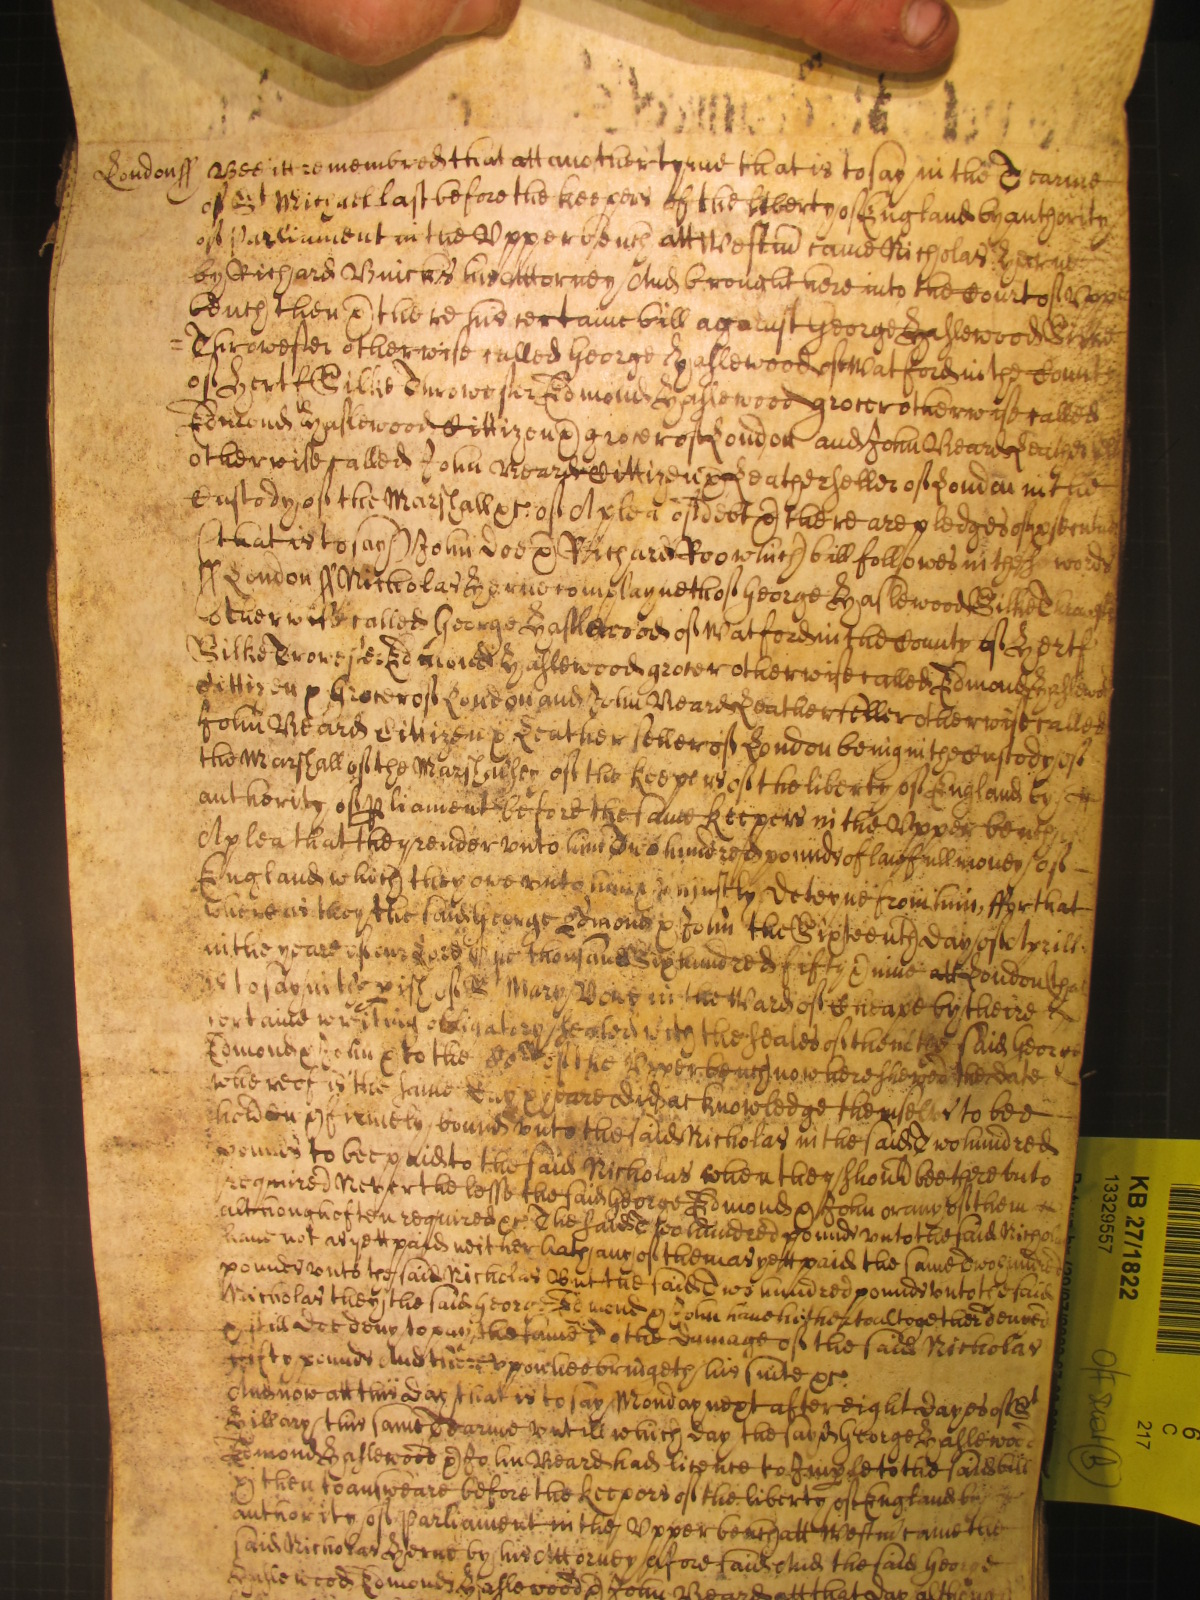 London ss Bee itt remembred that att another tyme that is to say in the Tearme
of St Michael last before the keepers of the liberty of England by authority
of Parliament in the Upper bench att Westm came Nicholas Herne
by Richard his Attorney And brought here into the Court of Upper
bench then & there his certaine bill against George Haslewood Silke
= Throwester otherwise called George Haslewood of Watford in the County
of Hertf Silke Throwester Edmond Haslewood grocer otherwise called
Edmond Haslewood Cittizen & grocer of London and John Beard Leather
otherwise called John Beard Cittizen & Leatherseller of London in the
Custody of the Marshall &c of A plea of debt & there are pledges of
(that is to say) John Doe & Richard Roo which bill followes in these words
ss London ss Nicholas Herne complayneth of George Haslewood Silke
otherwise called George Haslewood of Watford in the County of Hertf
Silke Trowester Edmond Haslewood grocer otherwise called Edmond Haslewood
Cittizen & Grocer of London and John Beard Leatherseller otherwise called
John Beard Cittizen & Leatherseller of London being in the Custody of
the Marshall of the Marshalsey of the keepers of the liberty of England by
authority of Pliament before the same keepers in the Upper bench
A plea that they render unto him Two hundred pounds of lawfull money of
England which they owe unto him & unjustly deteyne from him, ffor that
whereas they the said George Edmond & John the Sixteenth day of Aprill
in the yeare of our Lord One thousand Six hundred fifty & nine att London that
is to say in the pish of St Mary Bowe in the Ward of Cheape by theire
certaine writing obligatory sealed with the seales of them the said George
Edmond & John & to the of the Upper bench now here shewed the date
whereof is the same day & yeare did acknowledge themselves to bee
holden & firmely bound unto the said Nicholas in the said Two hundred
pounds to bee paid to the said Nicholas when they should bee there unto
required Neverthelesse the said George Edmond & John or any of them
although often required &c The said Two hundred pounds unto the said Nicholas
have not as yett paid neither hath any of them as yett paid the same Two hundred
pounds unto the said Nicholas But the said Two hundred pounds unto the said
Nicholas they the said George Edmond & John have hitherto altogether denyed
& still doe deny to pay the same To the damage of the said Nicholas
ffifty pounds And thereupon hee bringeth his suite &c
And now att this day that is to say Monday next after eight dayes of St
Hillary this same Tearme untill which day the said George Haslewood
Edmond Haslewood & John Beard had licence to Imple to the said bill
& then to answeare before the keepers of the liberty of England by
authority of Parliament in the Upper bench att Westm came the
said Nicholas Herne by his Attorney aforesaid And the said George
Haslewood Edmond Haslewood & John Beard att that day although
KB 27/1822
13329557
6
C
217